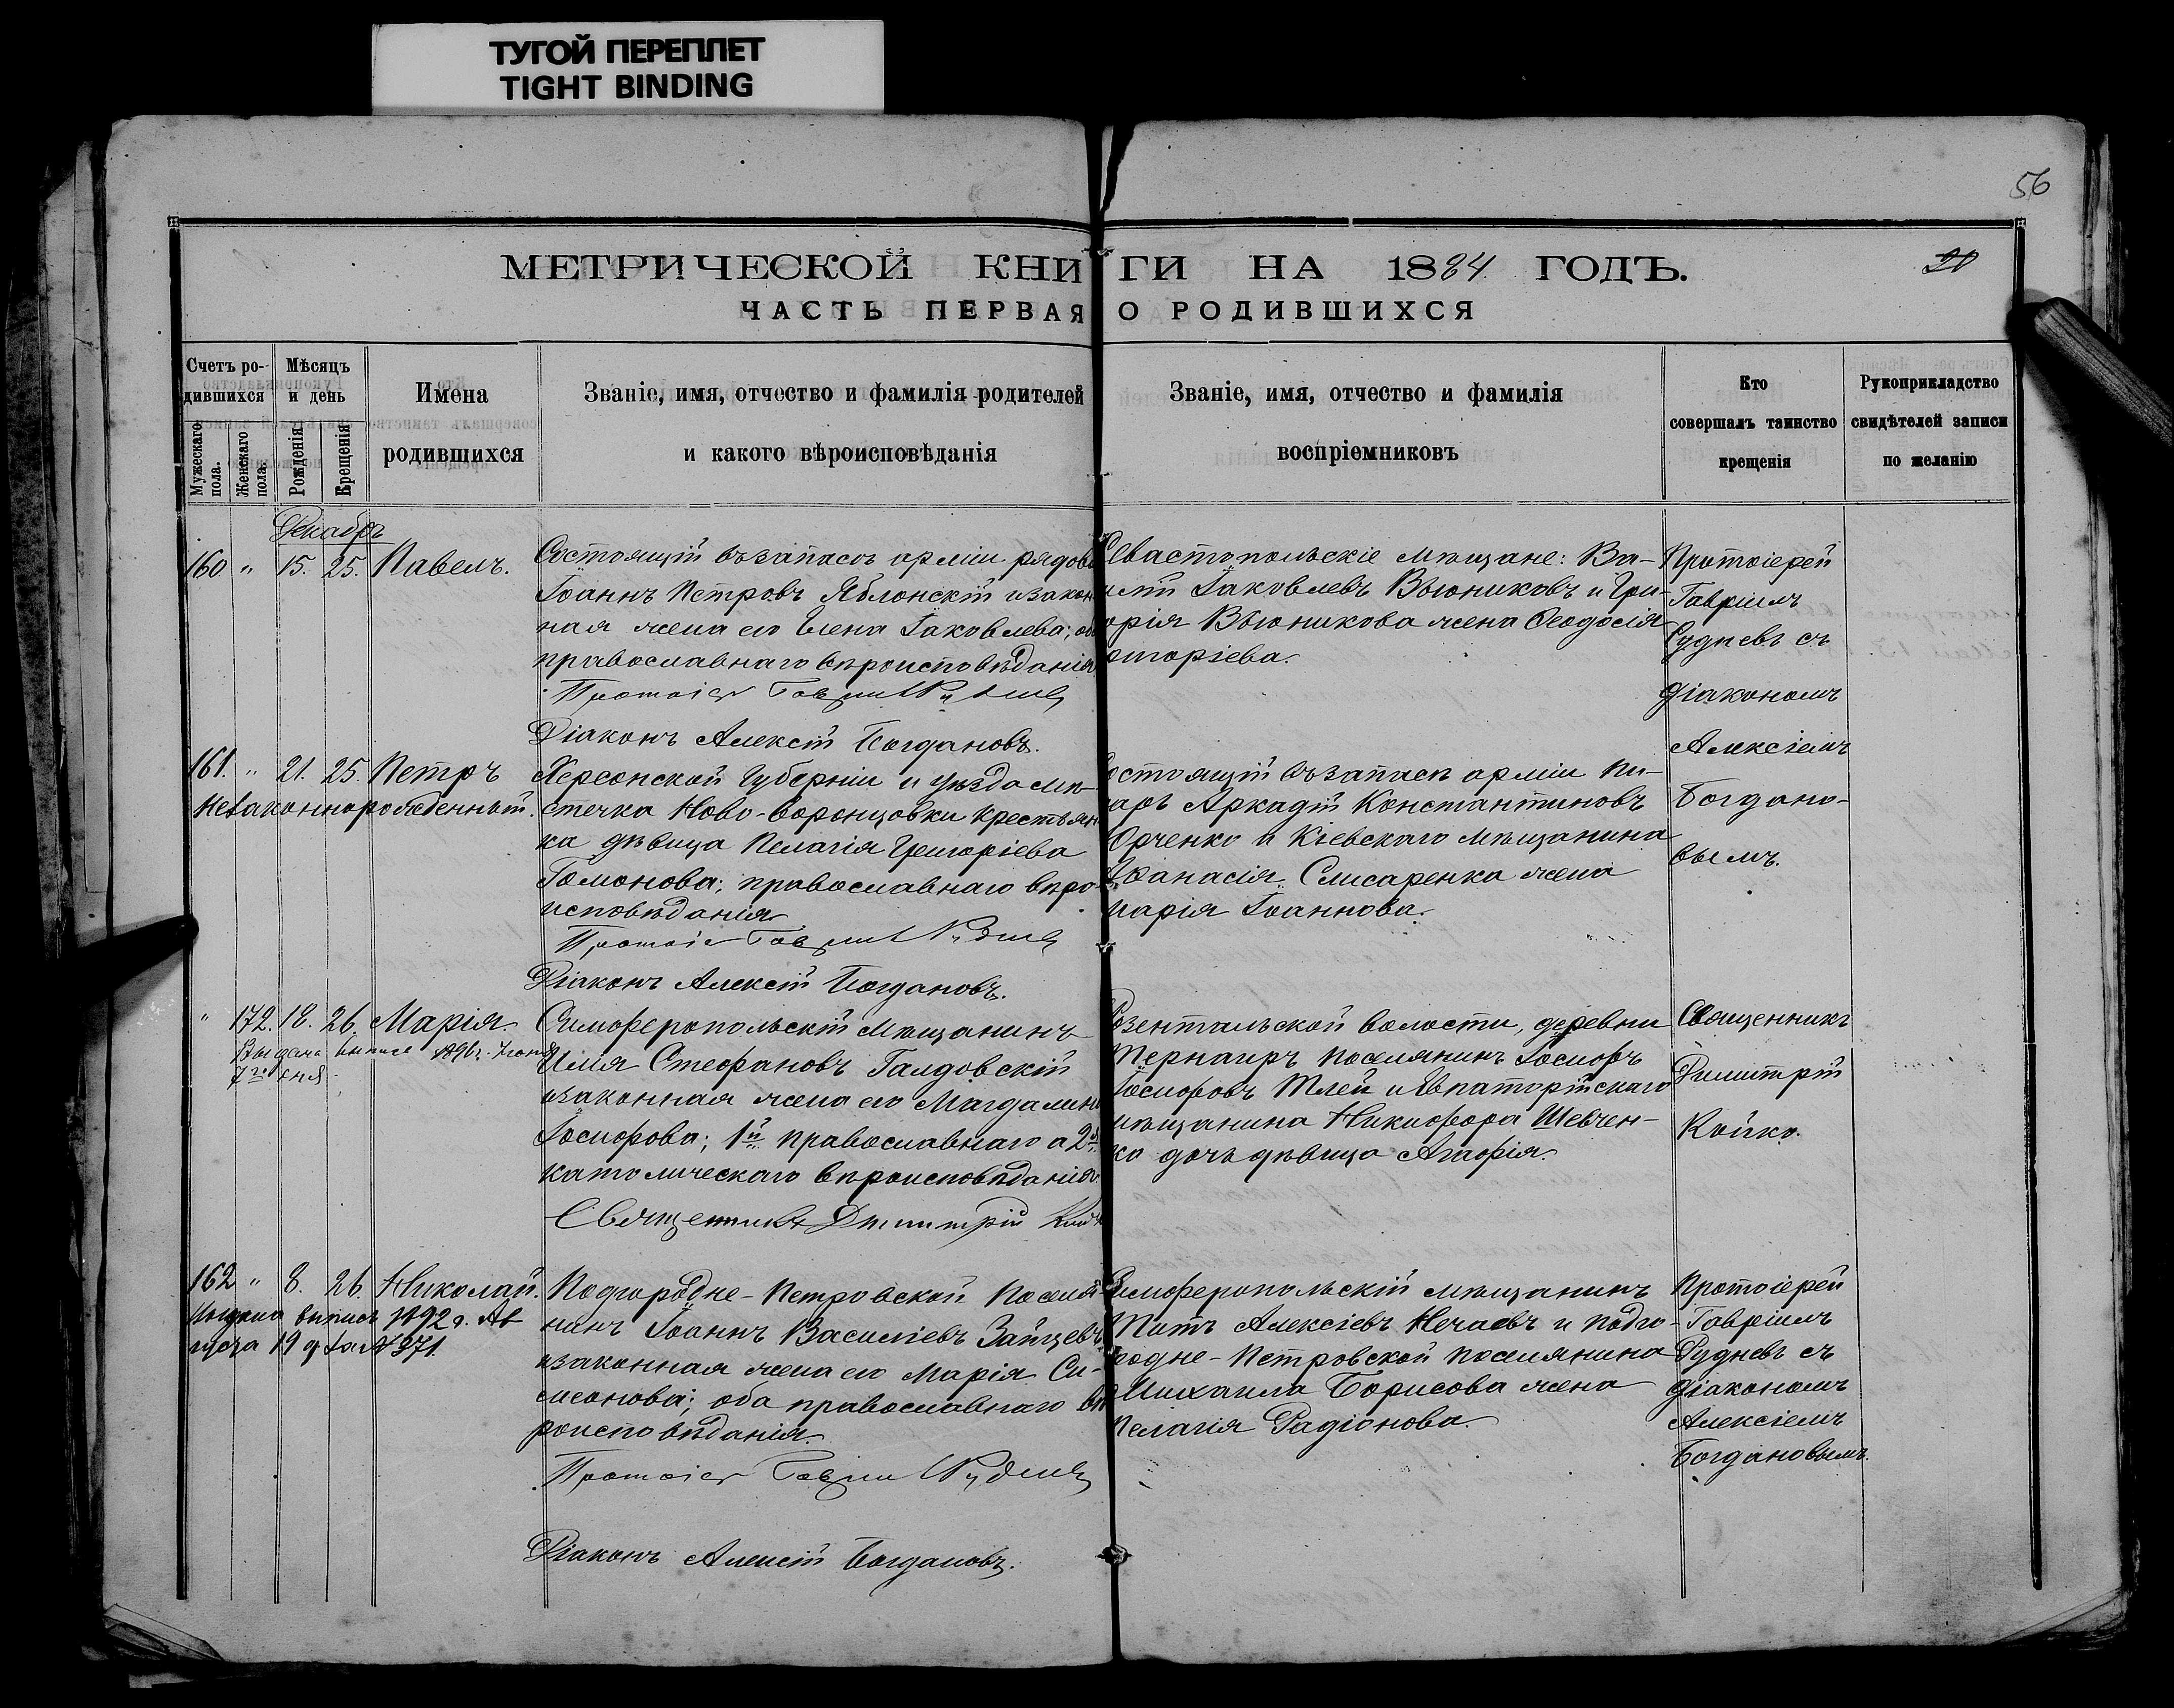 ТУГОЙ ПЕРЕПЛЕТ
TIGHT BINDING
56
МЕТРИЧЕСКОЙ КНИГИ НА 1884 ГОДЪ.
20
ЧАСТЬ ПЕРВАЯ О РОДИВШИХСЯ
Счетъ родившихся
Мужескаго пола.
Женскаго пола.
Мѣсяцъ и день
Рожденія
Крещенія
Имена
родившихся
Званіе, имя, отчество и фамилія родителей
и какого вѣроисповѣданія
Званіе, имя, отчество и фамилія
воспріемниковъ
Кто
совершалъ таинство
крещенія
Рукоприкладство
свидѣтелей записи
по желанію
Декабрь
160 " 15. 25. Павелъ.
Состоящій въ запасѣ арміи рядов
Іоаннъ Петровъ Яблонскій и закон
ная жена его Елена Іаковлева; оба
православнаго вѣроисповѣданія
Протоіер Гавріил Руднев
Діаконъ Алексій Богдановъ.
Севастопольскіе мѣщане: Ва-
илій Іаковлевъ Вьюниковъ и Гри-
орія Вьюникова жена Ѳеодосія
ригоріева.
Протоіерей
Гавріилъ
Рудневъ съ
діакономъ
Алексіемъ
Богдано-
вымъ.
161. " 21. 25. Петръ
Незаконнорожденный.
Херсонской Губерніи и уѣзда мѣ-
стечка Ново-Воронцовки крестьян
ка дѣвица Пелагія Григоріева
Гомонова; православнаго вѣро-
исповѣданія
Протоіер Гавріил Руднев
Діаконъ Алексій Богдановъ.
остоящій въ запасѣ арміи пи-
арь Аркадій Константиновъ
Юрченко и Кіевскаго мѣщанина
Аѳанасія Слисаренка жена
Марія Іоаннова.
" 172. 18. 26. Марія.
Выдана выпись 1896 г. Іюня
7го дня
Симферопольскій мѣщанинъ
Илія Стефановъ Галдовскій
и законная жена его Магдалина
Іосифова; 1й православнаго а 2я
католическаго вѣроисповѣданія
Священникъ Димитрій Койко
Розентальской волости, деревни
Тернаиръ поселянинъ Іосифъ
Іосифовъ Тлей и Евпаторійскаго
мѣщанина Никифора Шевчен-
ко дочь дѣвица Агафія.
Священникъ
Димитрій
Койко.
162 " 8. 26. Николай.
Выдана выпись 1892 г. Ав
густа 19 дня № 371.
Подгородне-Петровской поселя
нинъ Іоаннъ Василіевъ Зайцевъ
и законная жена его Марія Си-
меонова; оба православнаго вѣ
роисповѣданія.
Протоіер Гавріил Руднев
Діаконъ Алексій Богдановъ.
Симферопольскій мѣщанинъ
Титъ Алексіевъ Нечаевъ и подго-
родне-Петровской поселянина
Михаила Борисова жена
Пелагія Радіонова.
Протоіерей
Гавріилъ
Рудневъ съ
діакономъ
Алексіемъ
Богдановымъ.